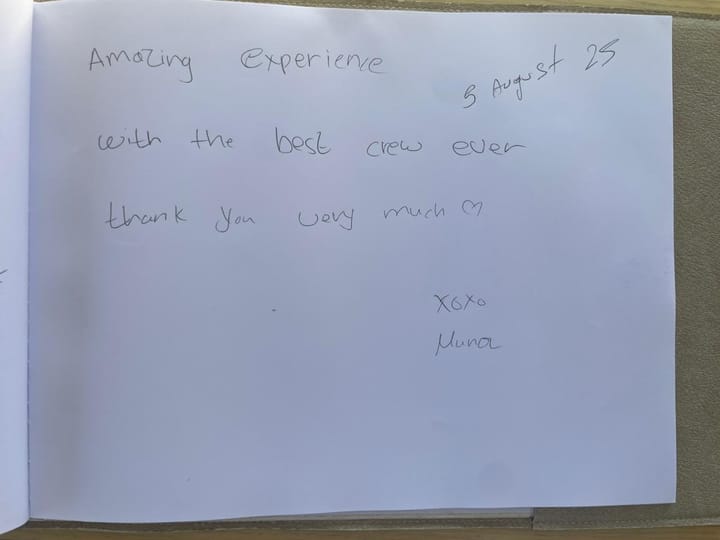 Amazing experience
5 August 25
with the best crew ever
thank you very much ♡
xoxo
Muna